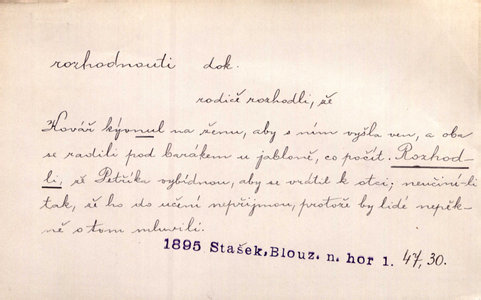 rozhodnouti dok.
rodiče rozhodli, že
Kovář kývnul na ženu, aby s ním vyšla ven, a oba
se radili pod barákem u jabloně, co počít. Rozhod-
li, že Petříka vybídnou, aby se vrátil k otci, neučiní-li
tak, že ho do učení nepřijmou, protože by lidé nepěk-
ně o tom mluvili.
1895 Stašek, Blouz. n. hor 1. 47, 30.